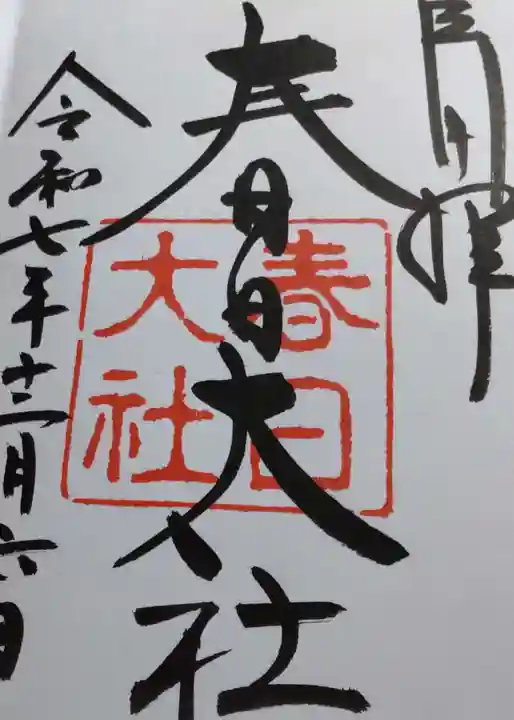 開門拝
春日大社
春日
大社
令和七年十二月六日